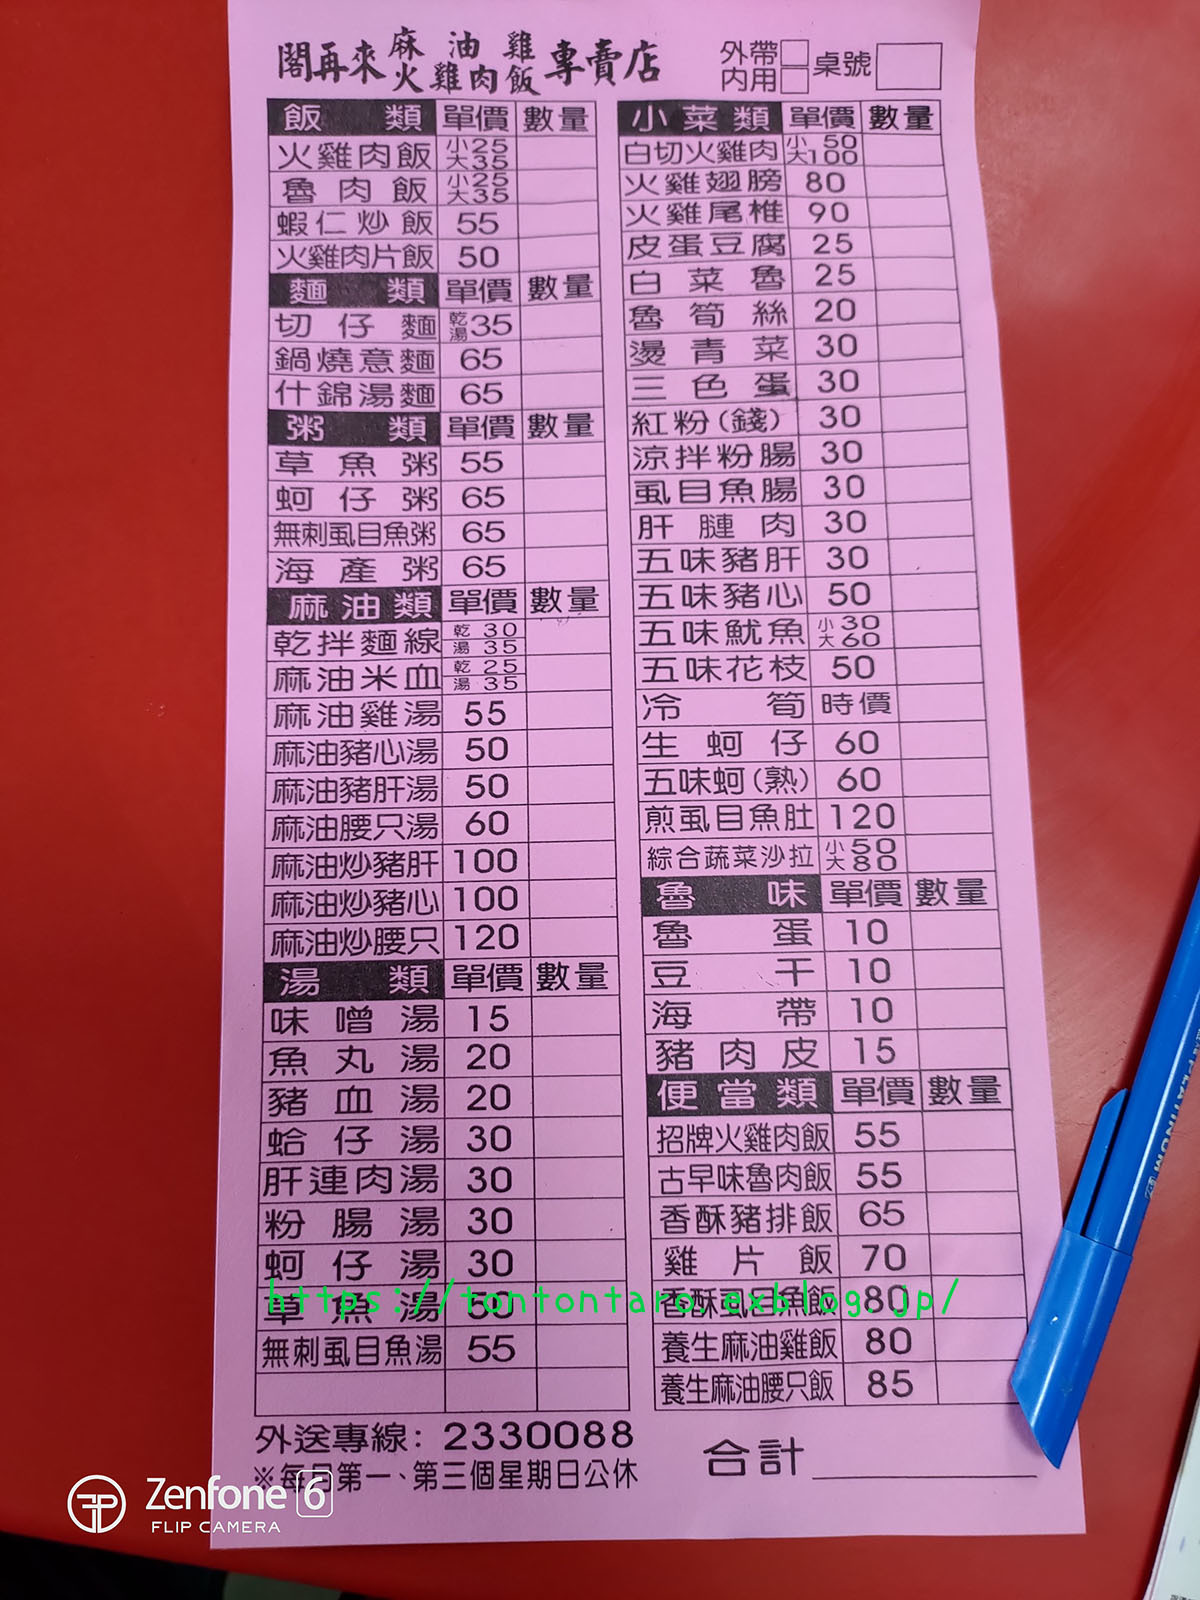 閣再來 麻油雞 火雞肉飯 專賣店
外帶 內用 桌號
飯類 單價 數量
火雞肉飯 小25 大35
魯肉飯 小25 大35
蝦仁炒飯 55
火雞肉片飯 50
麵類 單價 數量
切仔麵 乾湯35
鍋燒意麵 65
什錦湯麵 65
粥類 單價 數量
草魚粥 55
蚵仔粥 65
無刺虱目魚粥 65
海產粥 65
麻油類 單價 數量
乾拌麵線 乾 30 湯 35
麻油米血 乾 25 湯 35
麻油雞湯 55
麻油豬心湯 50
麻油豬肝湯 50
麻油腰只湯 60
麻油炒豬肝 100
麻油炒豬心 100
麻油炒腰只 120
湯類 單價 數量
味噌湯 15
魚丸湯 20
豬血湯 20
蛤仔湯 30
肝連肉湯 30
粉腸湯 30
蚵仔湯 30
草魚湯 50
無刺虱目魚湯 55
小菜類 單價 數量
白切火雞肉 小 50 大100
火雞翅膀 80
火雞尾椎 90
皮蛋豆腐 25
白菜魯 25
魯筍絲 20
燙青菜 30
三色蛋 30
紅粉(錢) 30
涼拌粉腸 30
虱目魚腸 30
肝膁肉 30
五味豬肝 30
五味豬心 50
五味魷魚 小30 大60
五味花枝 50
冷筍 時價
生蚵仔 60
五味蚵(熟) 60
煎虱目魚肚 120
綜合蔬菜沙拉 小50 大80
魯味 單價 數量
魯蛋 10
豆干 10
海帶 10
豬肉皮 15
便當類 單價 數量
招牌火雞肉飯 55
古早味魯肉飯 55
香酥豬排飯 65
雞片飯 70
香酥虱目魚飯 80
養生麻油雞飯 80
養生麻油腰只飯 85
https://tontontaro.exblog.jp/
外送專線：2330088
※每月第一、第三個星期日公休
合計
Zenfone 6
FLIP CAMERA
PLATINUM